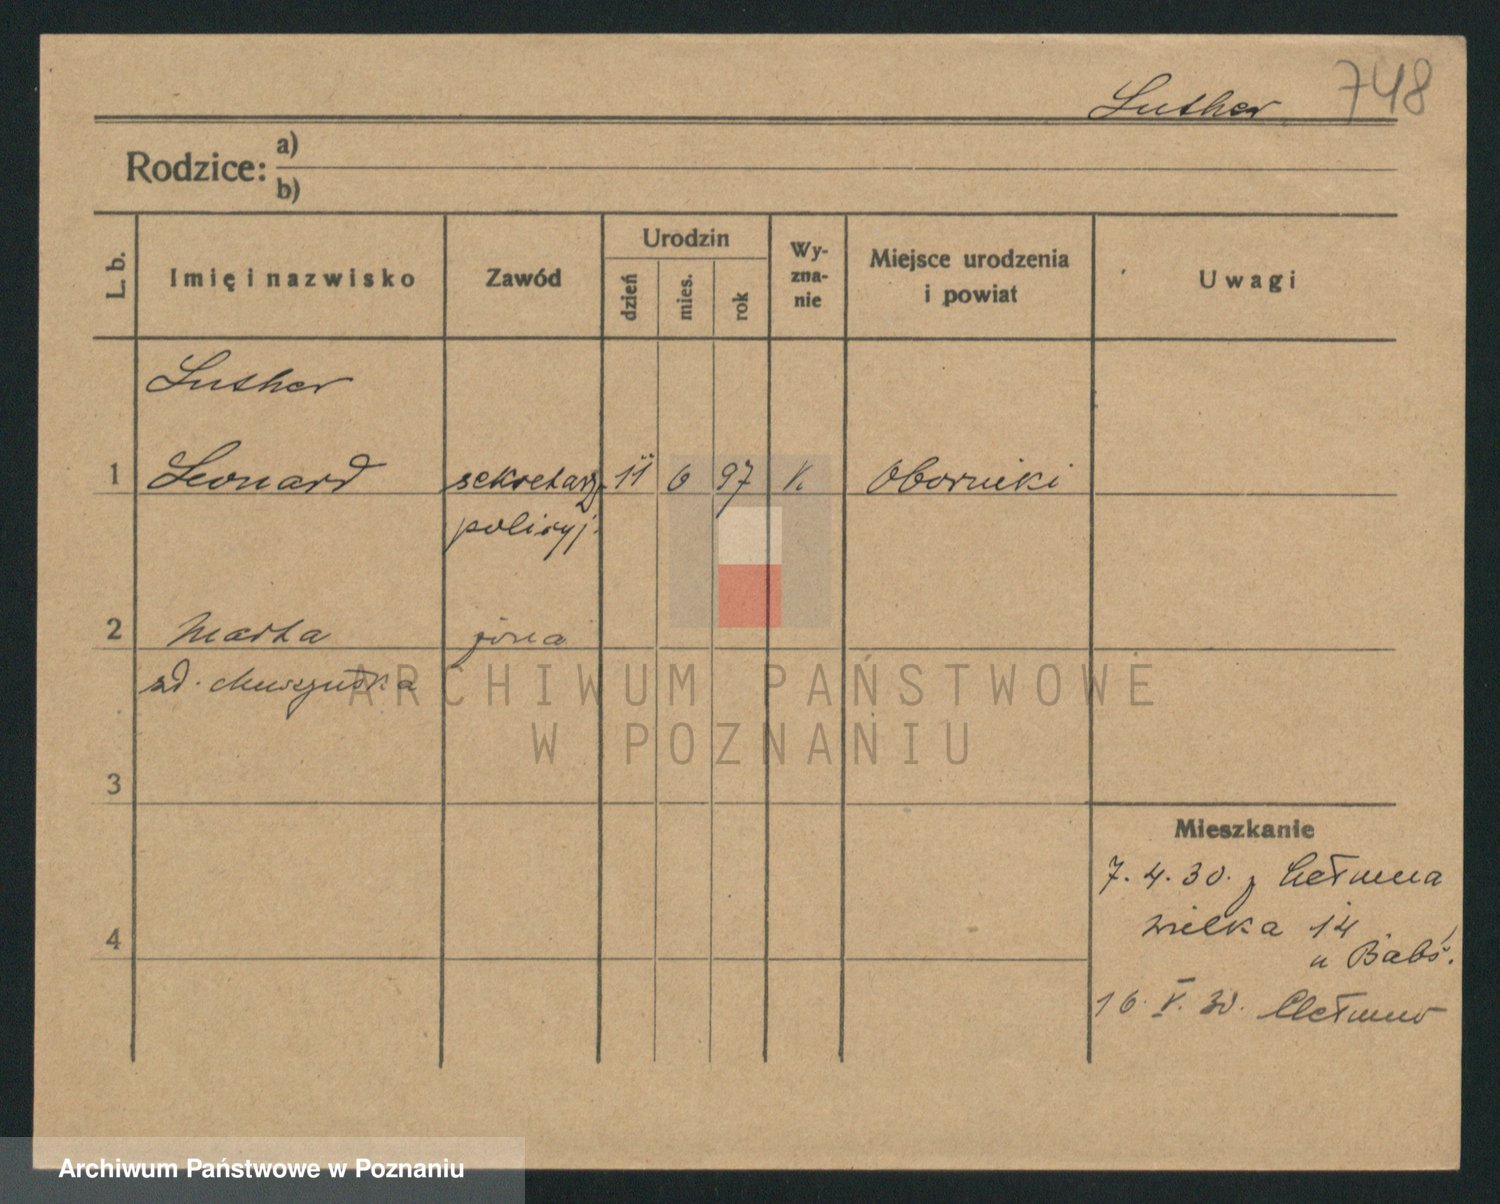 748
Luther
Rodzice: a)
b)
L. b.
Imię i nazwisko
Zawód
Urodzin
dzień
mies.
rok
Wy-
zna-
nie
Miejsce urodzenia
i powiat
Uwagi
Luther
1 Leonard sekretarz 11 6 97 k. Oborniki
policyj.
2 Marta żona
zd.
3
4
Mieszkanie
7. 4. 30. z Chełmna
wielka 14
u Babś.
16. V. 30. Chełmno
ARCHIWUM PAŃSTWOWE
W POZNANIU
Archiwum Państwowe w Poznaniu